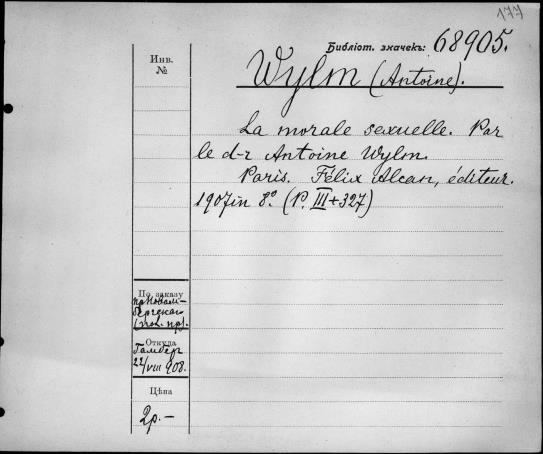 177
Библіот. значекъ: 68905.
Инв.
№
Wylm (Antoine).
La morale sexuelle. Par
le d-r Antoine Wylm.
Paris. Félix Alcan, éditeur.
1907 in 8° (P. III+327)
По заказу
пр. Новом-
бергскаго
Откуда
Гамбер
22/VIII 908.
Цѣна
2р.–